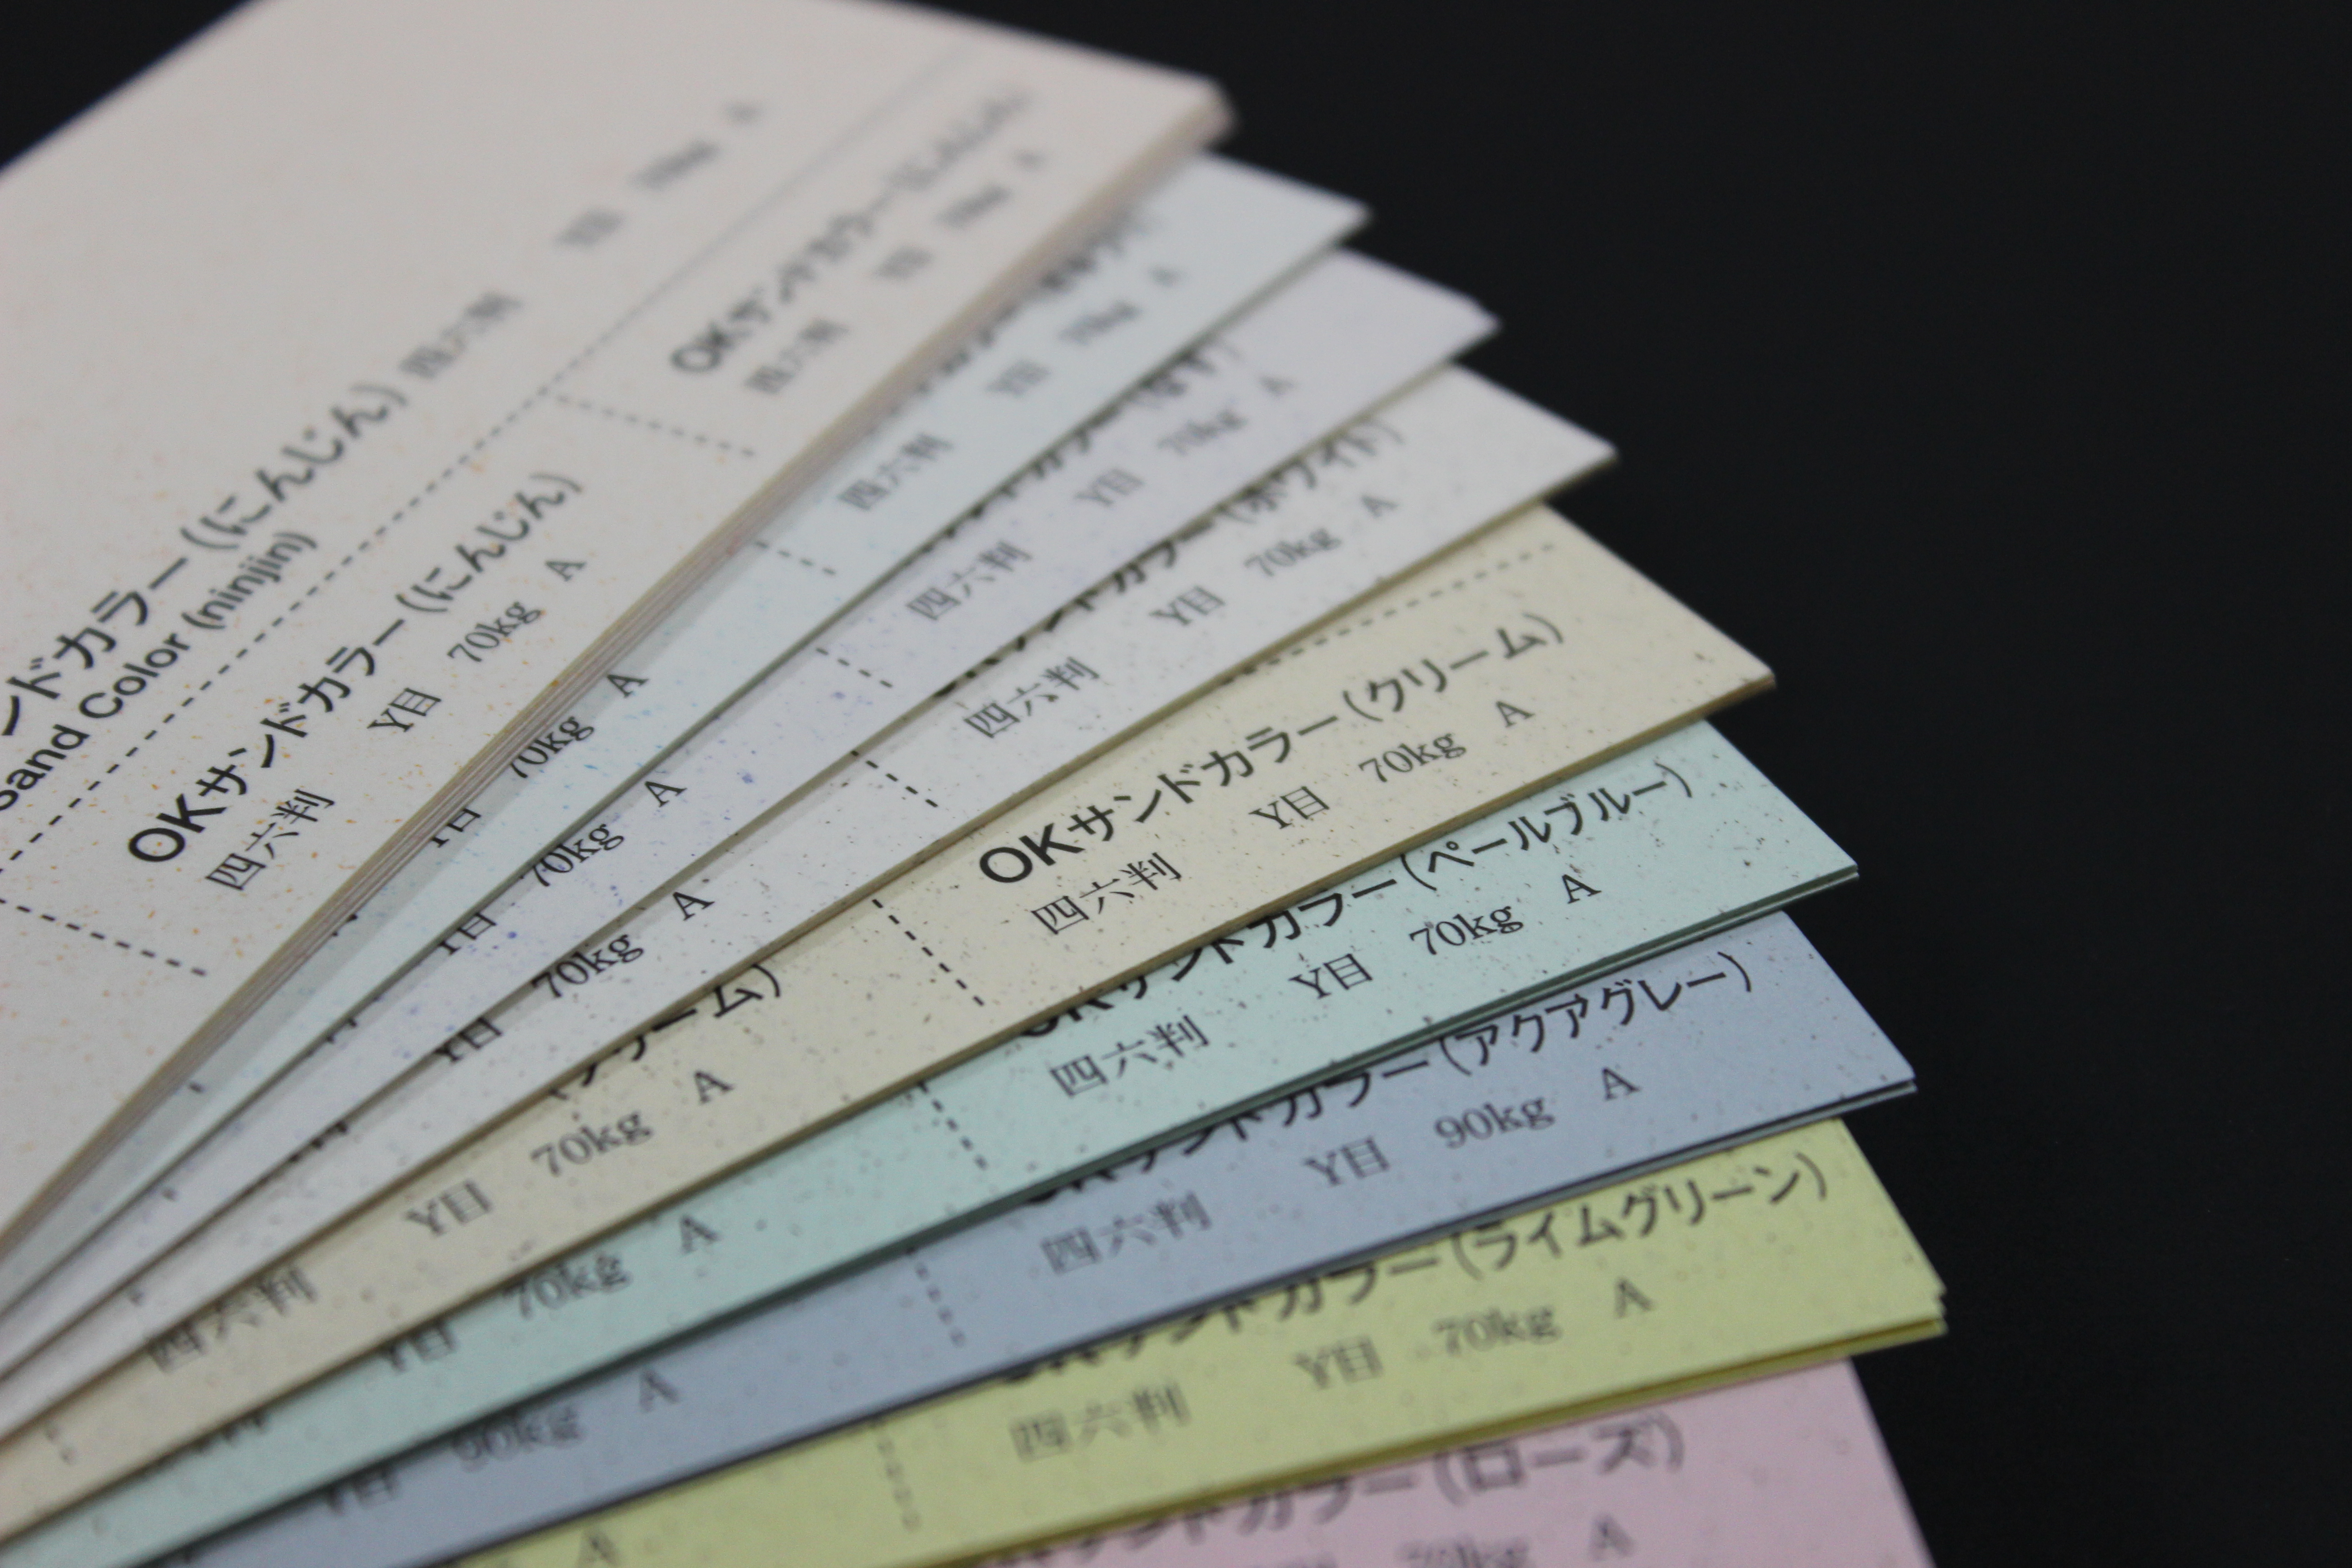 ンドカラー(にんじん) 四六判 Y目 70kg A
Sand Color (ninjin)
OKサンドカラー(にんじん)
四六判 Y目 70kg A
OKサンドカラー(にんじん)
四六判 Y目 70kg A
四六判 Y目 70kg A
70kg A
カラー(なす)
四六判 Y目 70kg A
Y目 70kg A
ンドカラー(ホワイト)
四六判 Y目 70kg A
Y目 70kg A
OKサンドカラー(クリーム)
四六判 Y目 70kg A
(クリーム)
四六判 Y目 70kg A
OKサンドカラー(ペールブルー)
四六判 Y目 70kg A
Y目 70kg A
OKサンドカラー(アクアグレー)
四六判 Y目 90kg A
Y目 90kg A
OKサンドカラー(ライムグリーン)
四六判 Y目 70kg A
A
サンドカラー(ローズ)
70kg A